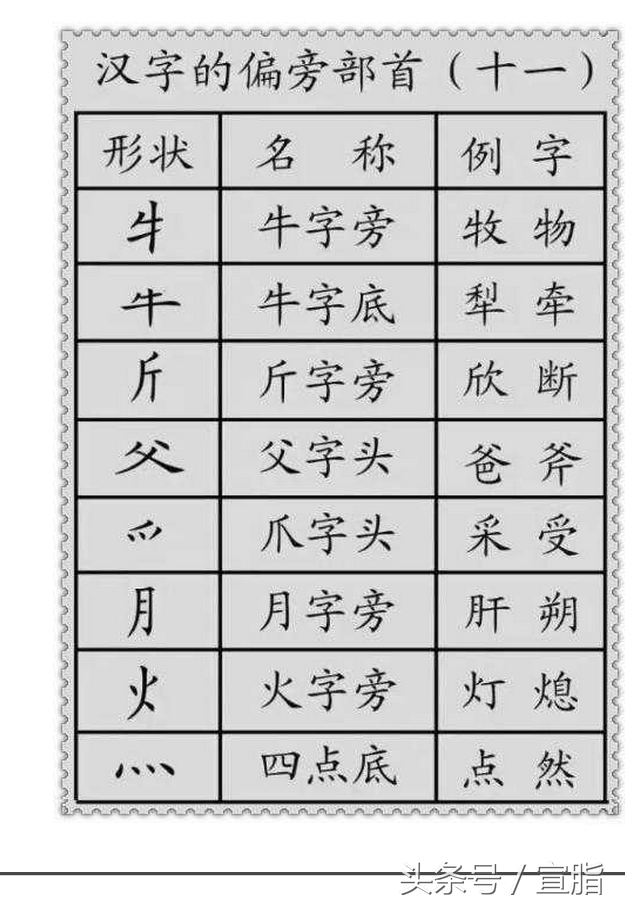 汉字的偏旁部首（十一）
形状 名 称 例 字
牜 牛字旁 牧 物
牛 牛字底 犁 牵
斤 斤字旁 欣 断
父 父字头 爸 斧
爫 爪字头 采 受
月 月字旁 肝 朔
火 火字旁 灯 熄
灬 四点底 点 然
头条号 / 宣脂